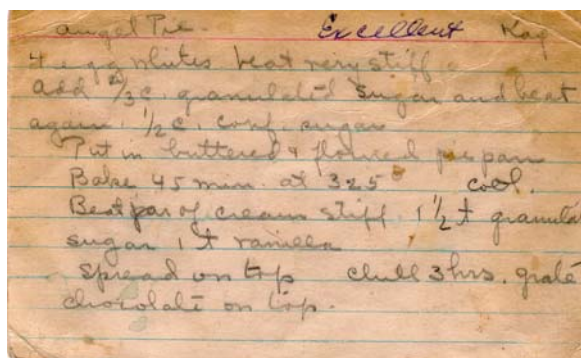 Angel Pie. Excellent Kay
4 egg whites beat very stiff
add 2/3 c. granulated sugar and beat
again. 1/2 c. conf. sugar
Put in buttered & floured pie pan
Bake 45 min. at 325° cool.
Beat jar of cream stiff. 1 1/2 t granula
sugar 1 t vanilla
Spread on top chill 3 hrs. grate
chocolate on top.